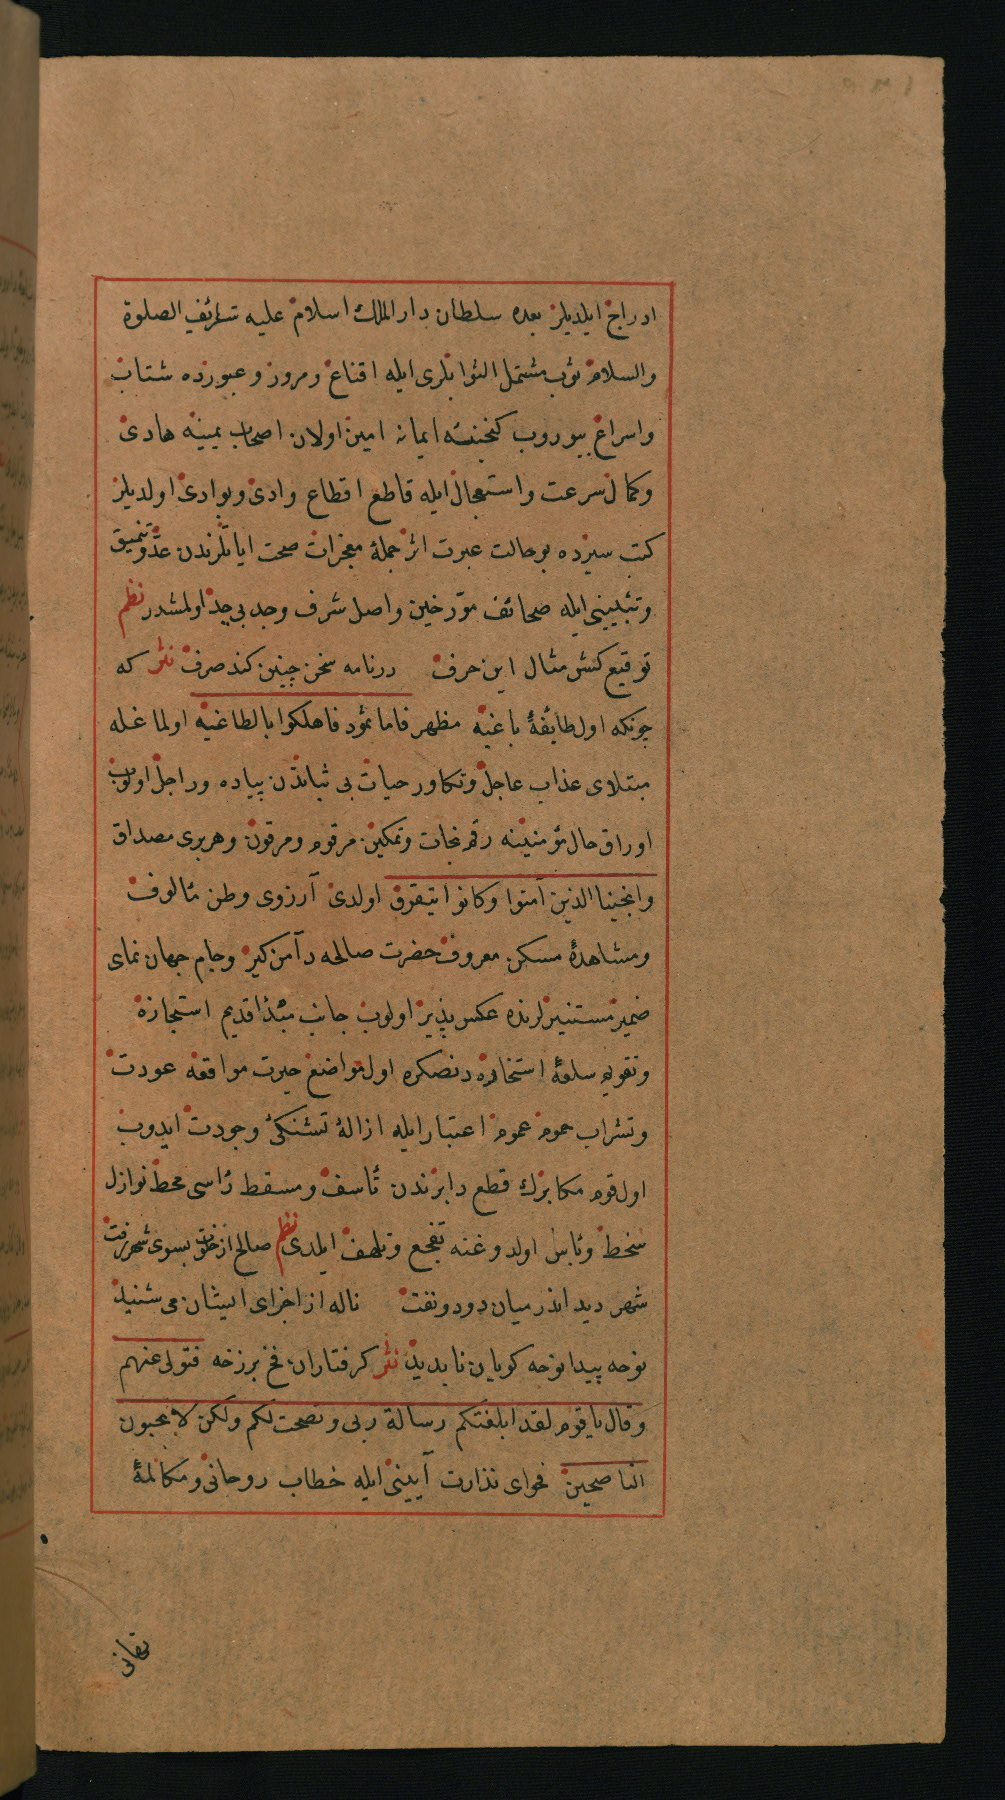 ادراج ايلديلر بعده سلطان دار الملك اسلام عليه شرائف الصلوة
والسلام ثوب مشتمل الثوابلرى ايله اقناع ومرور وعبورده شتاب
واسراع بيوروب كنجينهٔ ايمانه امين اولان اصحاب يمينه هادى
وكمال سرعت واستعجال ايله قاطع اقطاع وادى وبوادى اولديلر
كتب سيرده بو حالت عبرت اثر جملهٔ معجزات صحت اياتلرندن عدّ وتنميق
وتبيينى ايله صحائف مورّخين واصل شرف وجد بى حد اولمشدر نظم
توقيع كنش مثال اين حرف درنامه سخن چنين كند صرف نثر كه
چونكه اول طايفهٔ باغيه مظهر فاما ثمود فاهلكوا بالطاغيه اولماغله
مبتلاى عذاب عاجل وتكاور حيات بى ثباتدن پياده وراجل اولوب
اوراق حال مؤمنينه رقم نجات وتمكين مرقوم ومرقون وهر برى مصداق
وانجينا الذين آمنوا وكانوا يتقون اولدى آرزوى وطن مألوف
ومشاهدهٔ مسكن معروف حضرت صالحه دامن كير وجام جهان نماى
ضمير مستنيرلرنده عكس پذير اولوب جانب مبدأ قديم استجازه
وتقويم سلعهٔ استخاره دنصكره اول مواضع حيرت مواقعه عودت
وتشراب حموم عموم اعتبار ايله ازالهٔ تشنكئ وجودت ايدوب
اول قوم مكابرك قطع دابرندن تأسف ومسقط رأسى محط نوازل
سخط وبأس اولدوغنه تفجع وتلهف ايلدى نظم صالح از خلوت بسوى شهر رفت
شهر ديد اندر ميان دود ونفت ناله از اجزاى ايشان مى شنيد
نوحه پيدا نوحه كويان ناپديد نثر كرفتاران فخ برزخه فتولى عنهم
وقال ياقوم لقد ابلغتكم رسالة ربى ونصحت لكم ولكن لا تحبون
الناصحين فحواى نذارت آيينى ايله خطاب روحانى ومكالمهٔ